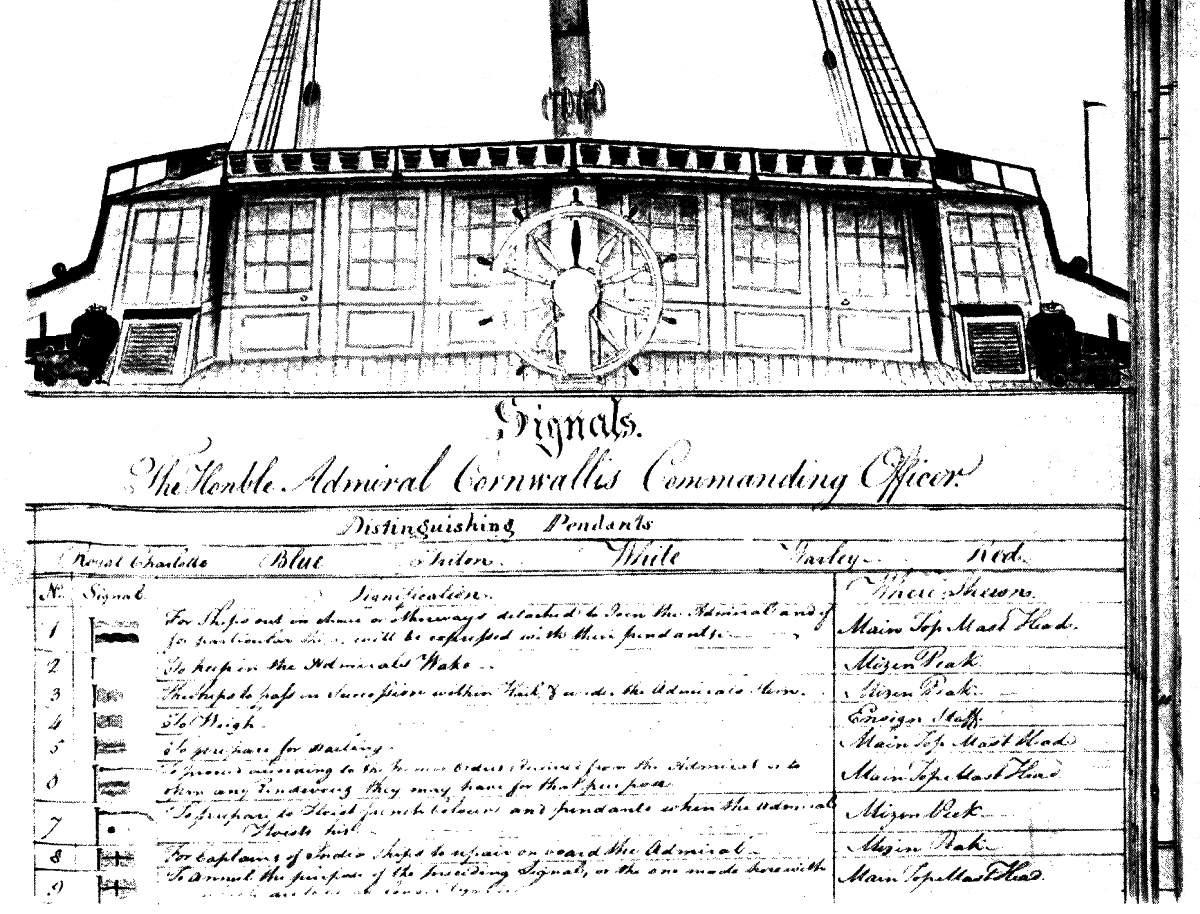 Signals.
The Honble Admiral Cornwallis Commanding Officer.
Distinguishing Pendants
Royal Charlotte Blue Triton White Warley Red
No. Signal Signification Where Shewn
1 For Ships out in chace or otherways detached to Join the Admiral and if Main Top Mast Head.
for particular will be expressed with their pendants
2 To keep in the Admirals Wake Mizen Peak
3 The Ships to pass in Succession within Hail & under the Admirals Stern. Mizen Peak
4 To Weigh Ensign Staff
5 To prepare for Sailing Main Top Mast Head
6 To proceed according to the Orders Received from the Admiral or to Main Top Mast Head
them any rendevous they may have for that purpose
7 To prepare to Hoist french Colours and pendants when the Admiral Mizen Peek
Hoists his
8 For Captains of India Ships to repair on board the Admiral Mizen Peak
9 To Annul the purpose of the preceeding Signal, or the one made therewith Main Top Mast Head.